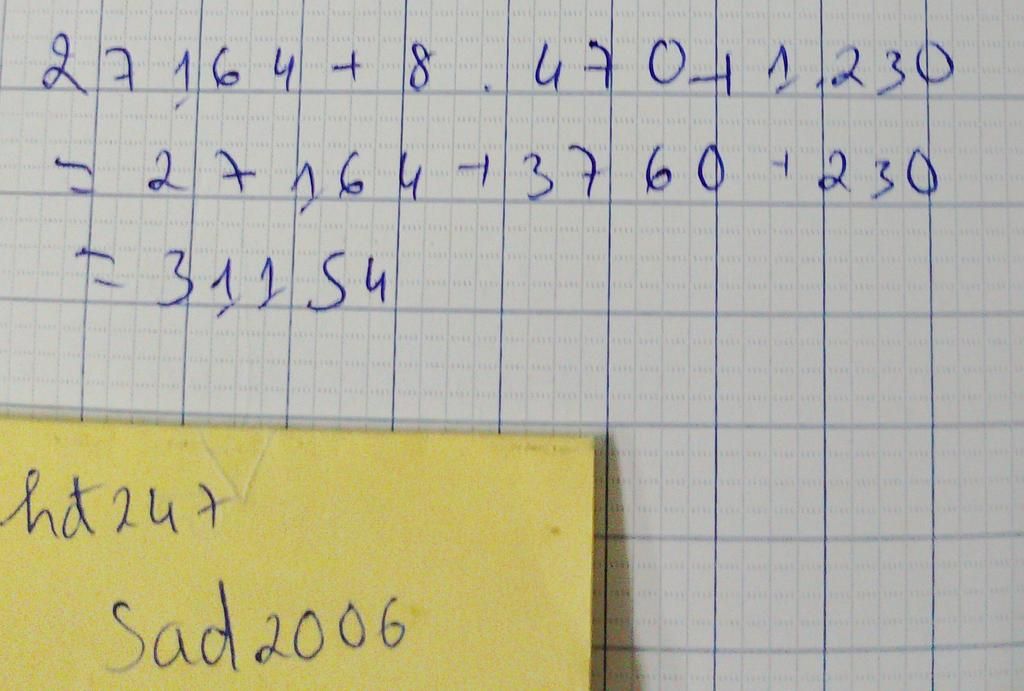 27164 + 8 . 470 + 1.230
= 27164 + 3760 + 230
= 31154
ht247
Sad2006